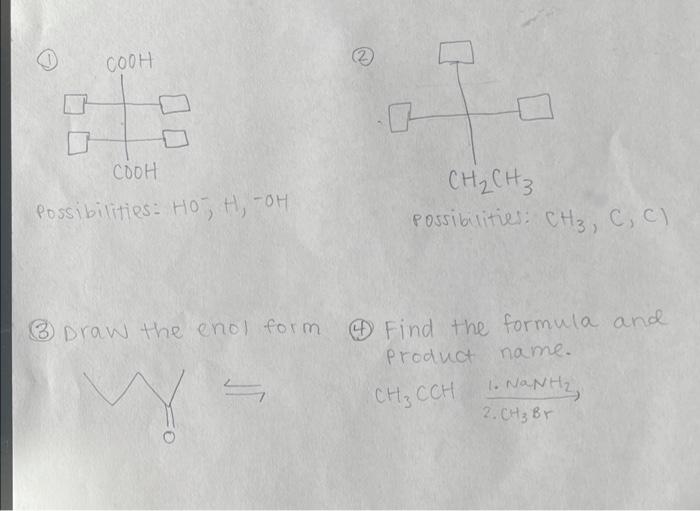 ① COOH
COOH
Possibilities: HO-, H, -OH
②
CH2CH3
Possibilities: CH3, C, Cl
③ Draw the enol form
O
④ Find the formula and
product name.
CH3CCH 1. NaNH2,
2. CH3Br